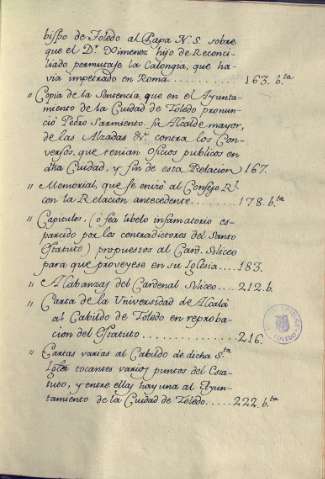 bispo de Toledo al Papa N. S. sobre
que el Dr. Ximenez hijo de Reconci-
liado permutase la Calongia, que ha-
via impetrado en Roma ........ 163. b.ta
" Copia de la Sentencia, que en el Ayunta-
miento de la Ciudad de Toledo pronun-
ció Pedro Sarmiento su Alcalde mayor,
de las Alzadas &c. contra los Con-
versos, que tenian oficios publicos en
dha Ciudad, y fin de esta Relacion 167.
" Memorial, que se envió al Consejo Rl.
con la Relacion antecedente .... 178. b.ta
" Capitulos, (ó sea libelo infamatorio es-
parcido por los contradictores del Santo
Estatuto) propuestos al Card. Siliceo
para que proveyese en su Iglesia .... 183.
" Alabanzas del Cardenal Siliceo .... 212. b.
" Carta de la Universidad de Alcalá
al Cabildo de Toledo en reproba-
cion del Estatuto ........ 216.
" Cartas varias al Cabildo de dicha Sta.
Iglesia tocantes varios puntos del Esta-
tuto, y entre ellas hay una al Ayun-
tamiento de la Ciudad de Toledo ..... 222. b.ta